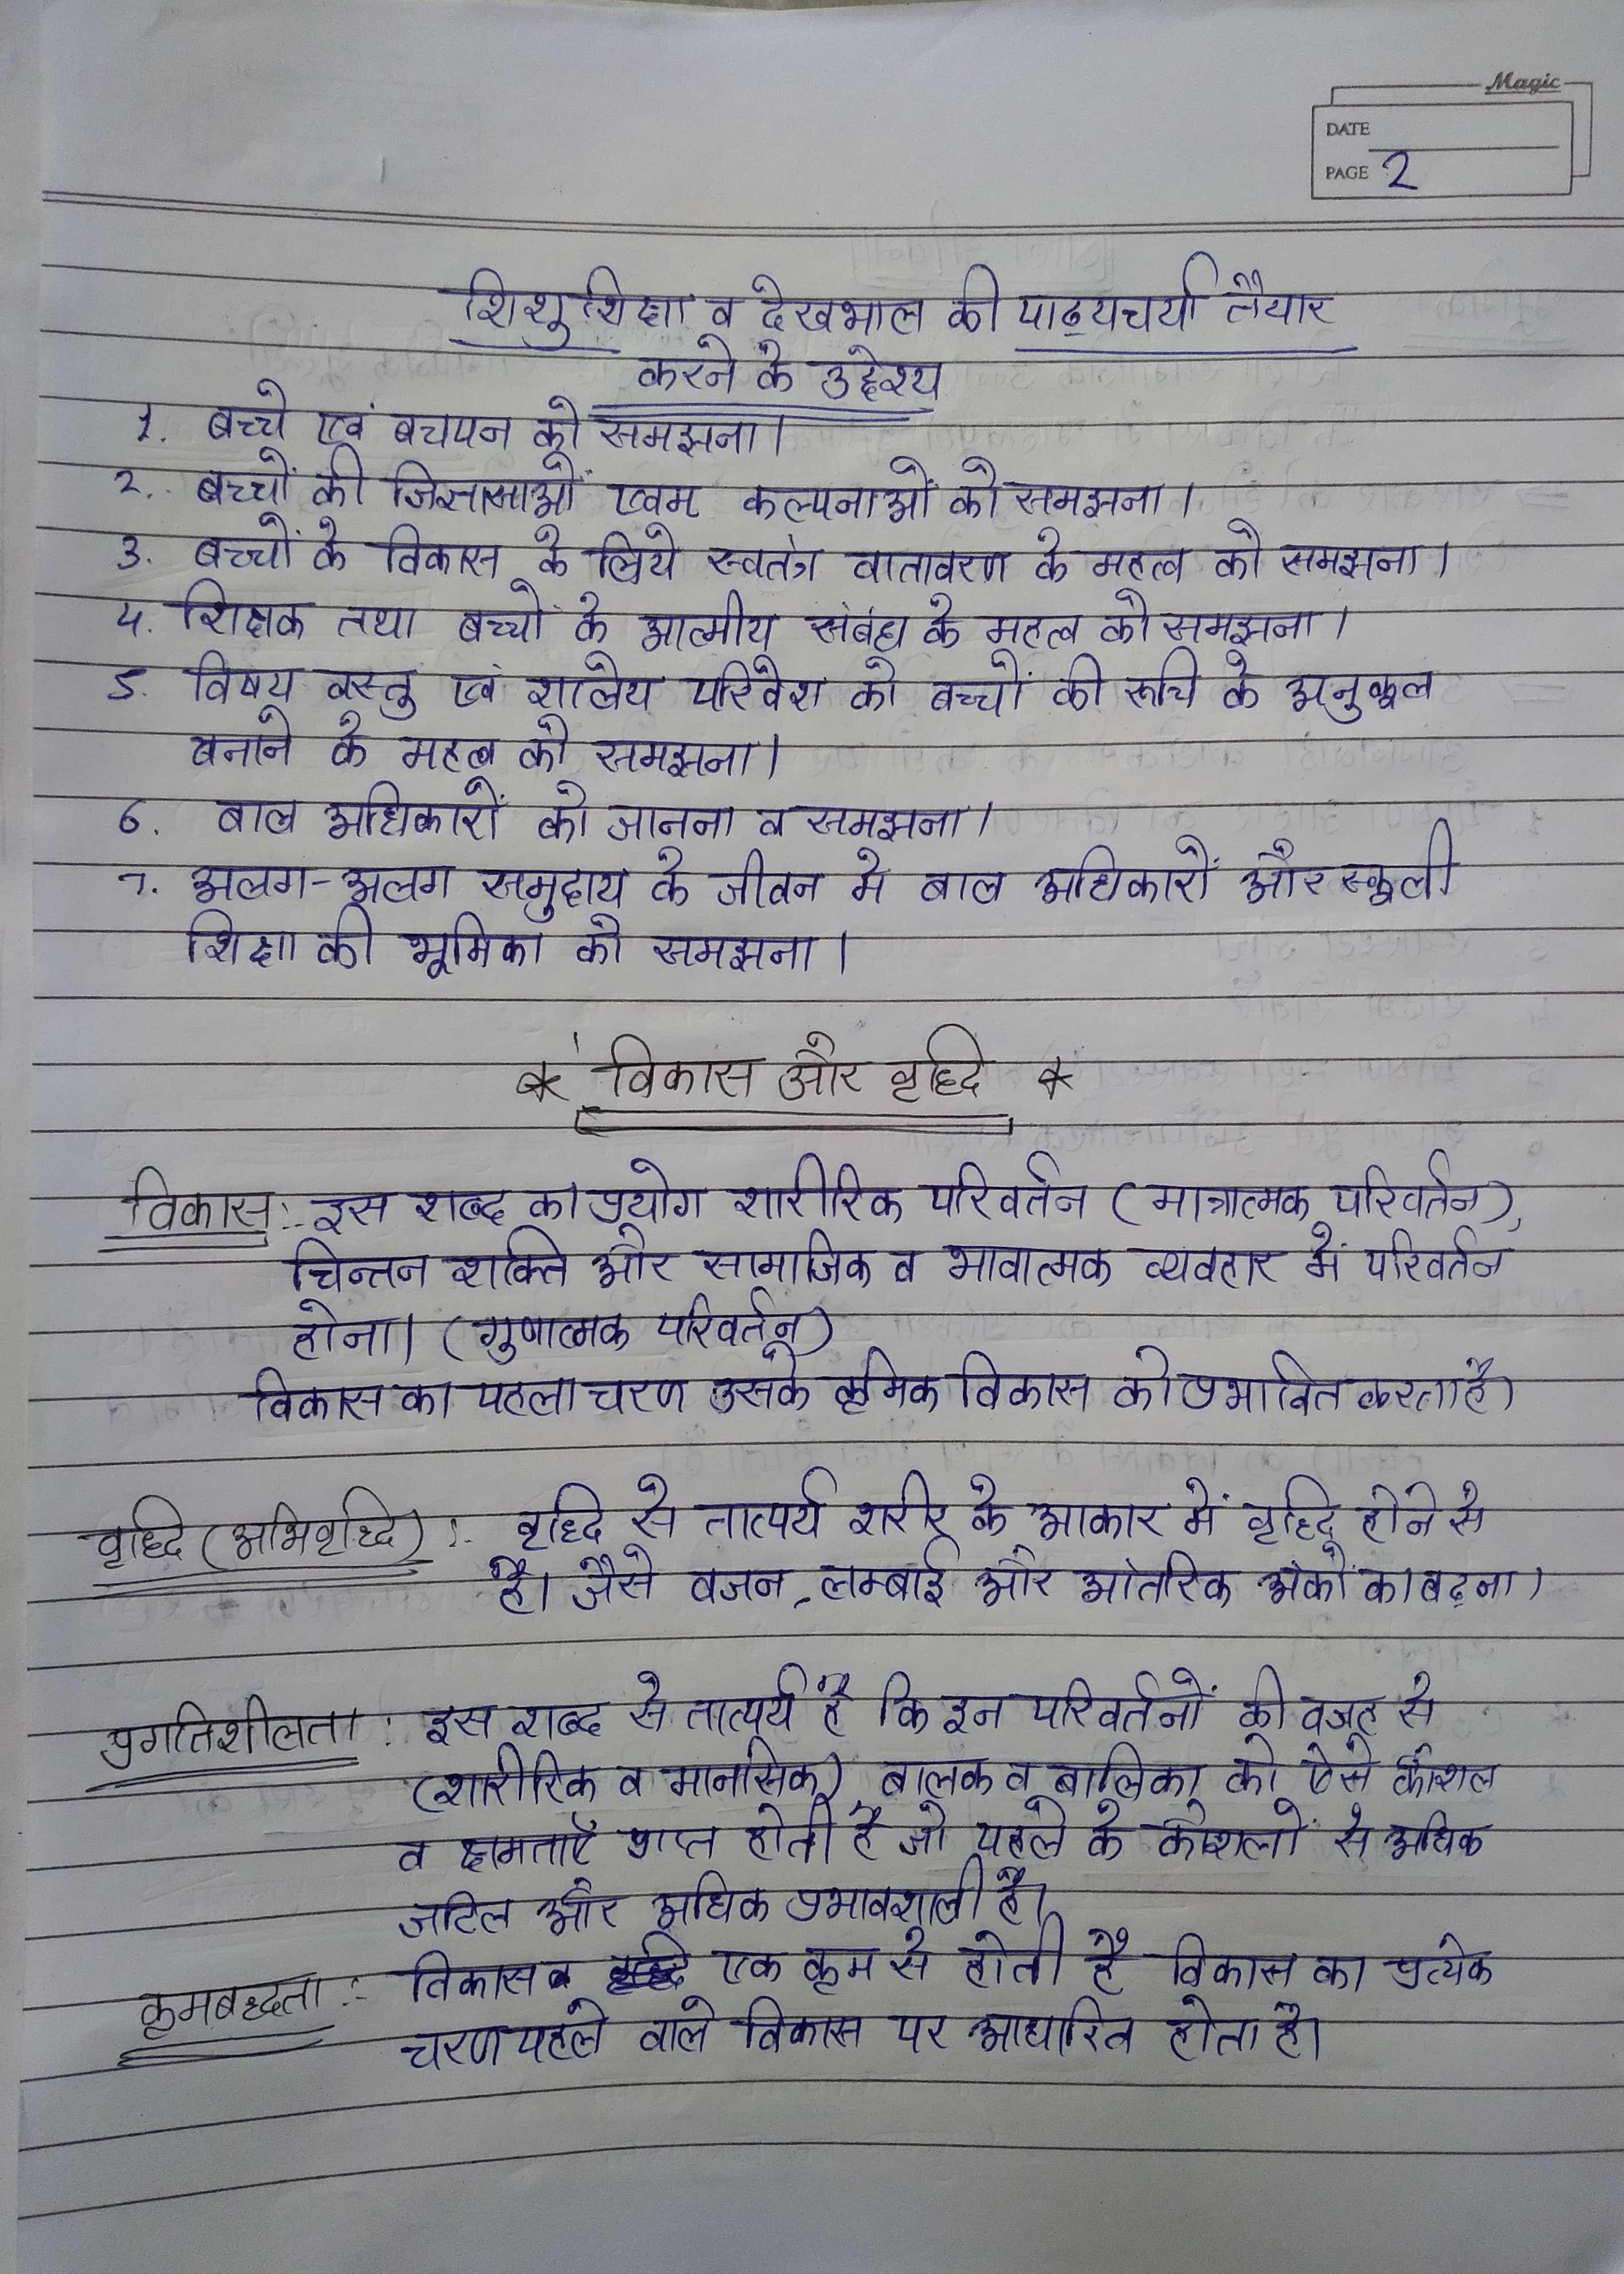 Magic
DATE
PAGE 2
शिशु शिक्षा व देखभाल की पाठ्यचर्या तैयार
करने के उद्देश्य
1. बच्चे एवं बचपन को समझना।
2. बच्चों की जिज्ञासाओं एवम कल्पनाओं को समझना।
3. बच्चों के विकास के लिये स्वतंत्र वातावरण के महत्व को समझना।
4. शिक्षक तथा बच्चों के आत्मीय संबंध के महत्व को समझना।
5. विषय वस्तु एवं शालेय परिवेश को बच्चों की रूचि के अनुकूल
बनाने के महत्व को समझना।
6. बाल अधिकारों को जानना व समझना।
7. अलग-अलग समुदाय के जीवन मे बाल अधिकारों और स्कूली
शिक्षा की भूमिका को समझना।
* विकास और वृद्धि *
विकास:- इस शब्द का प्रयोग शारीरिक परिवर्तन (मात्रात्मक परिवर्तन),
चिन्तन शक्ति और सामाजिक व भावात्मक व्यवहार में परिवर्तन
होना। (गुणात्मक परिवर्तन)
विकास का पहला चरण उसके क्रमिक विकास को प्रभावित करता है।
वृद्धि (अभिवृद्धि):- वृद्धि से तात्पर्य शरीर के आकार में वृद्धि होने से
है। जैसे वजन, लम्बाई और आंतरिक अंकों का बढ़ना।
प्रगतिशीलता: इस शब्द से तात्पर्य है कि इन परिवर्तनों की वजह से
(शारीरिक व मानसिक) बालक व बालिका को ऐसे कौशल
व क्षमताएँ प्राप्त होती है जो पहले के कौशलों से अधिक
जटिल और अधिक प्रभावशाली है।
क्रमबद्धता:- विकास व वृद्धि एक क्रम से होती है विकास का प्रत्येक
चरण पहले वाले विकास पर आधारित होता है।